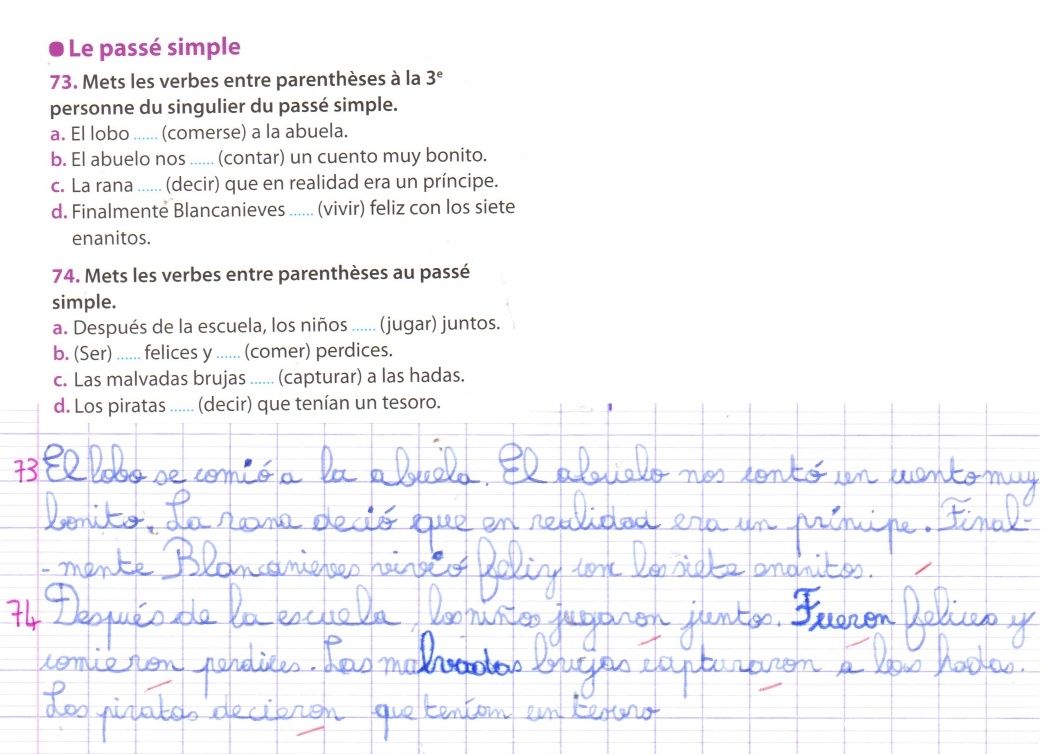 Le passé simple
73. Mets les verbes entre parenthèses à la 3e
personne du singulier du passé simple.
a. El lobo ...... (comerse) a la abuela.
b. El abuelo nos ...... (contar) un cuento muy bonito.
c. La rana ...... (decir) que en realidad era un príncipe.
d. Finalmente Blancanieves ...... (vivir) feliz con los siete
enanitos.
74. Mets les verbes entre parenthèses au passé
simple.
a. Después de la escuela, los niños ...... (jugar) juntos.
b. (Ser) ...... felices y ...... (comer) perdices.
c. Las malvadas brujas ...... (capturar) a las hadas.
d. Los piratas ...... (decir) que tenían un tesoro.
73 El lobo se comió a la abuela. El abuelo nos contó un cuento muy
bonito. La rana deció que en realidad era un príncipe. Final-
-mente Blancanieves vivió feliz con los siete enanitos.
74 Después de la escuela, los niños jugaron juntos. Fueron felices y
comieron perdices. Las malvadas brujas capturaron a las hadas.
Los piratas decieron que teníam un tesoro